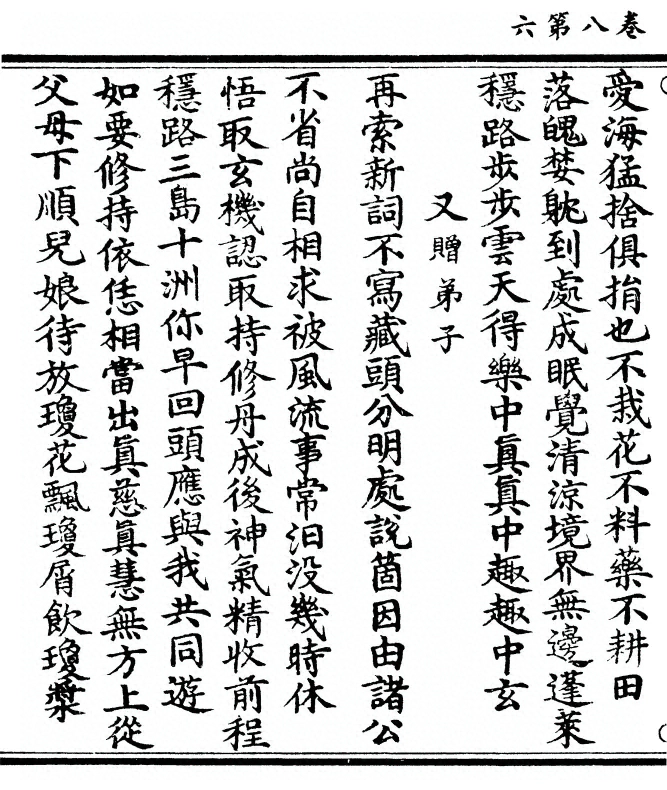 卷八第六
愛海猛捨俱捐也不栽花不料藥不耕田
落魄婪躭到處成眠覺清涼境界無邊蓬萊
穩路步步雲天得樂中真真中趣趣中玄
又贈弟子
再索新詞不寫藏頭分明處說箇因由諸公
不省尚自相求被風流事常汨没幾時休
悟取玄機認取持修丹成後神氣精收前程
穩路三島十洲你早回頭應與我共同遊
如要修持依恁相當出真慈真慧無方上從
父母下順兒娘待放瓊花飄瓊屑飲瓊漿